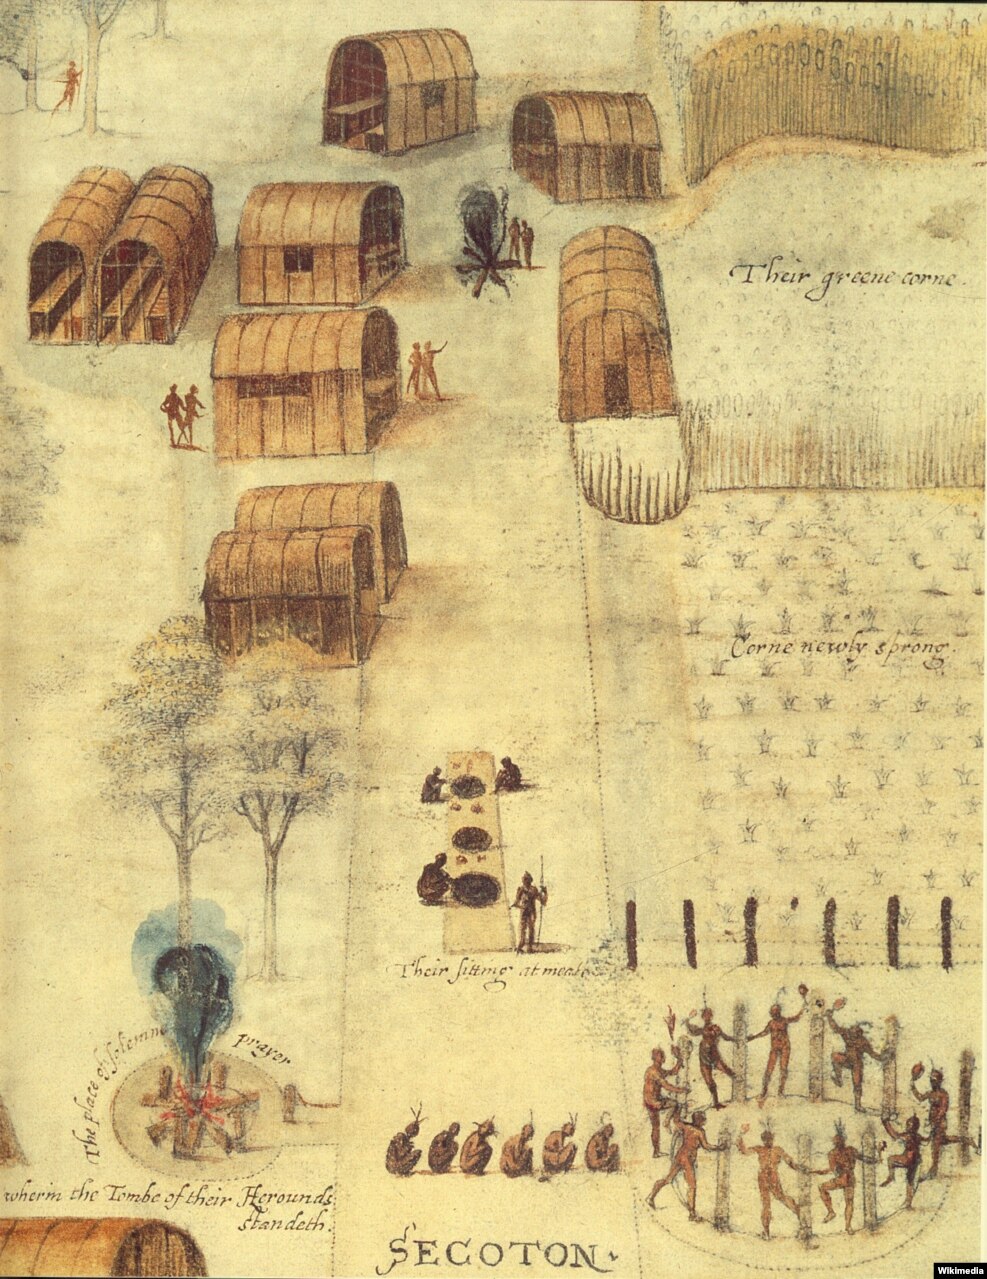 Their greene corne.
Corne newly sprong.
Their sitting at meate
The place of solemne prayer
wherin the Tombe of their Herounds
standeth.
SECOTON.
Wikimedia